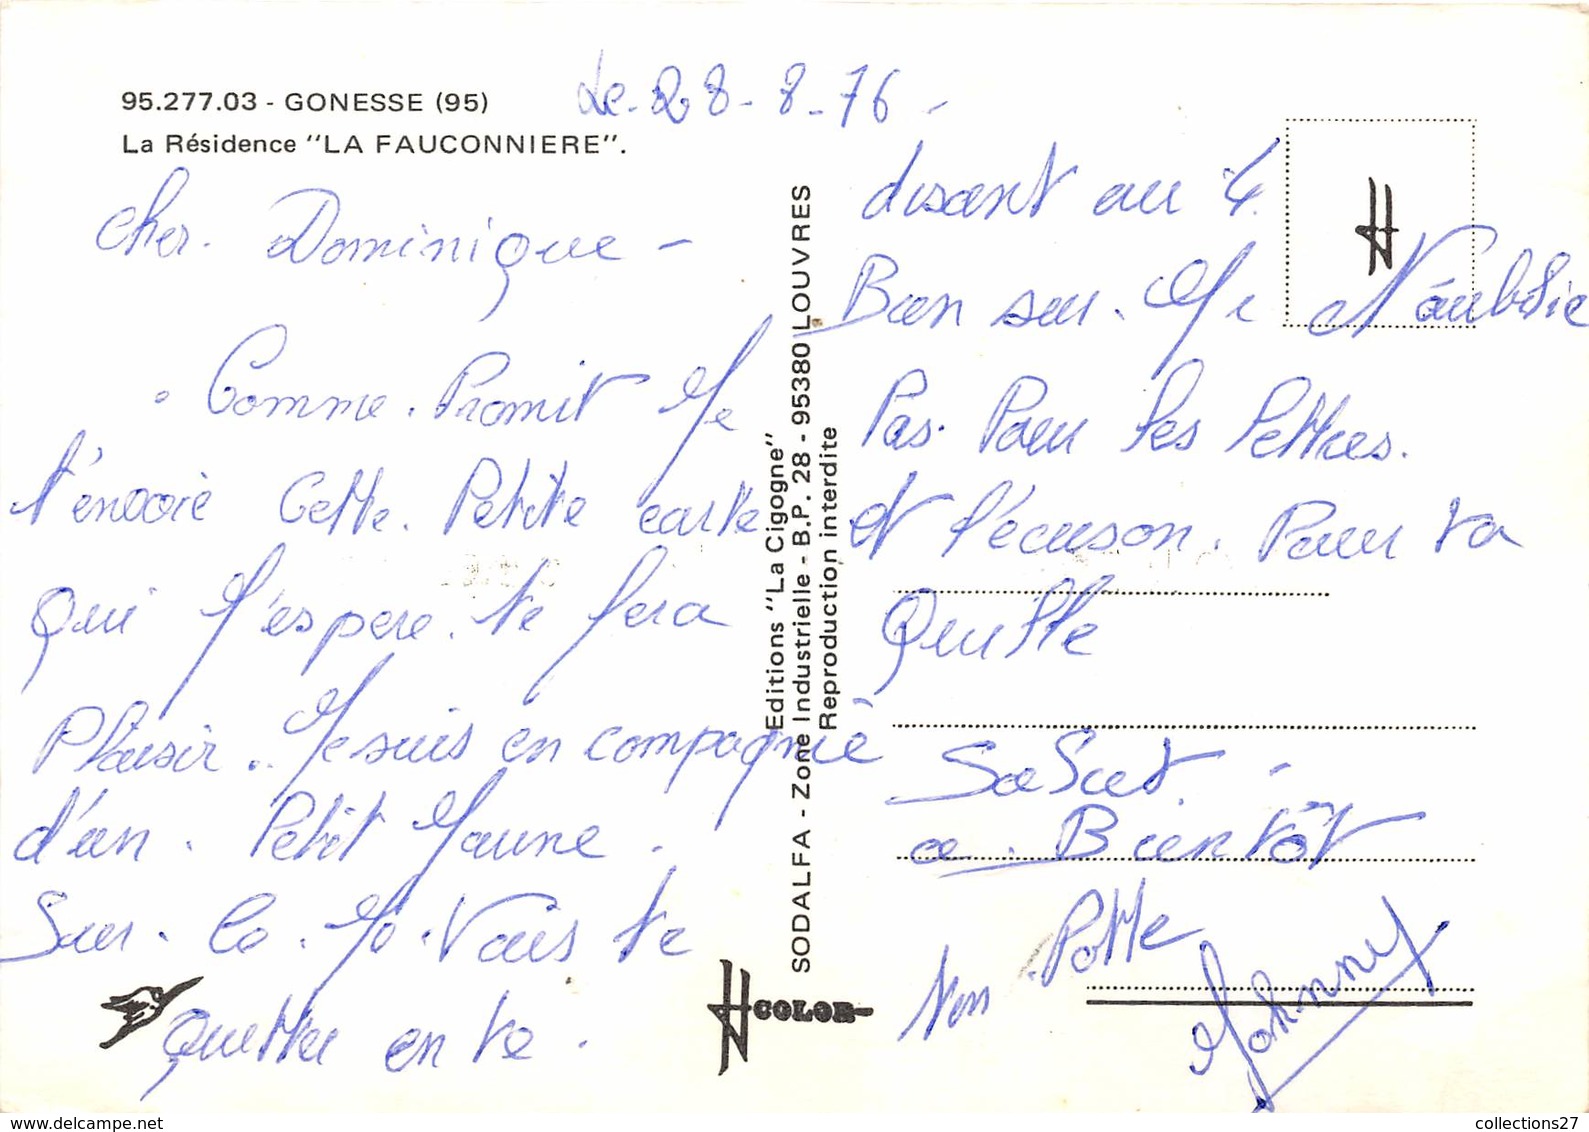 95.277.03 - GONESSE (95)
La Résidence "LA FAUCONNIERE".
Le. 28-8-76-
Cher. Dominique -
. Comme. Promit Je
t'envoie Cette. Petite carte
Qui J'espere. te fera
Plaisir.. Je suis en compagnie
d'un. Petit Jaune.
Sur. Ce. Je. Vais te
Quetter en te.
disant au 4.
Bien sur. Je N'oublie
Pas. Pour les lettres.
et l'écuson. Pour ta
Quitte
Salut. -
a. Bientôt
ton Potte
Johnny
Editions "La Cigogne"
SODALFA - Zone Industrielle - B.P. 28 - 95380 LOUVRES
Reproduction interdite
COLOR
collections27
www.delcampe.net